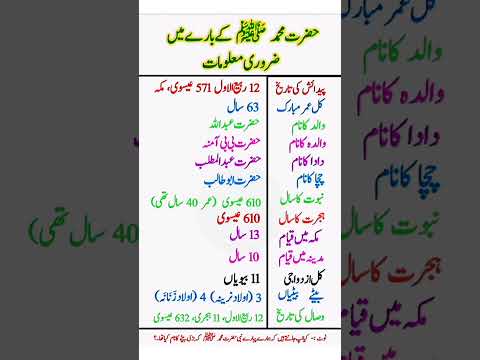 حضرت محمد ﷺ کے بارے میں
ضروری معلومات
پیدائش کی تاریخ 12 ربیع الاول 571 عیسوی، مکہ
کل عمر مبارک 63 سال
والد کا نام حضرت عبداللہ
والدہ کا نام حضرت بی بی آمنہ
دادا کا نام حضرت عبدالمطلب
چچا کا نام حضرت ابو طالب
نبوت کا سال 610 عیسوی (عمر 40 سال تھی)
ہجرت کا سال 610 عیسوی
مکہ میں قیام 13 سال
مدینہ میں قیام 10 سال
کل ازدواجی 11 بیویاں
بیٹے بیٹیاں 3 (اولاد نرینہ) 4 (اولاد زَنَانَہ)
وصال کی تاریخ 12 ربیع الاول، 11 ہجری، 632 عیسوی
نوٹ :- کیا آپ جانتے ہیں کہ ہمارے پیارے نبی حضرت محمد ﷺ کے بڑے بیٹے کا نام کیا تھا۔؟